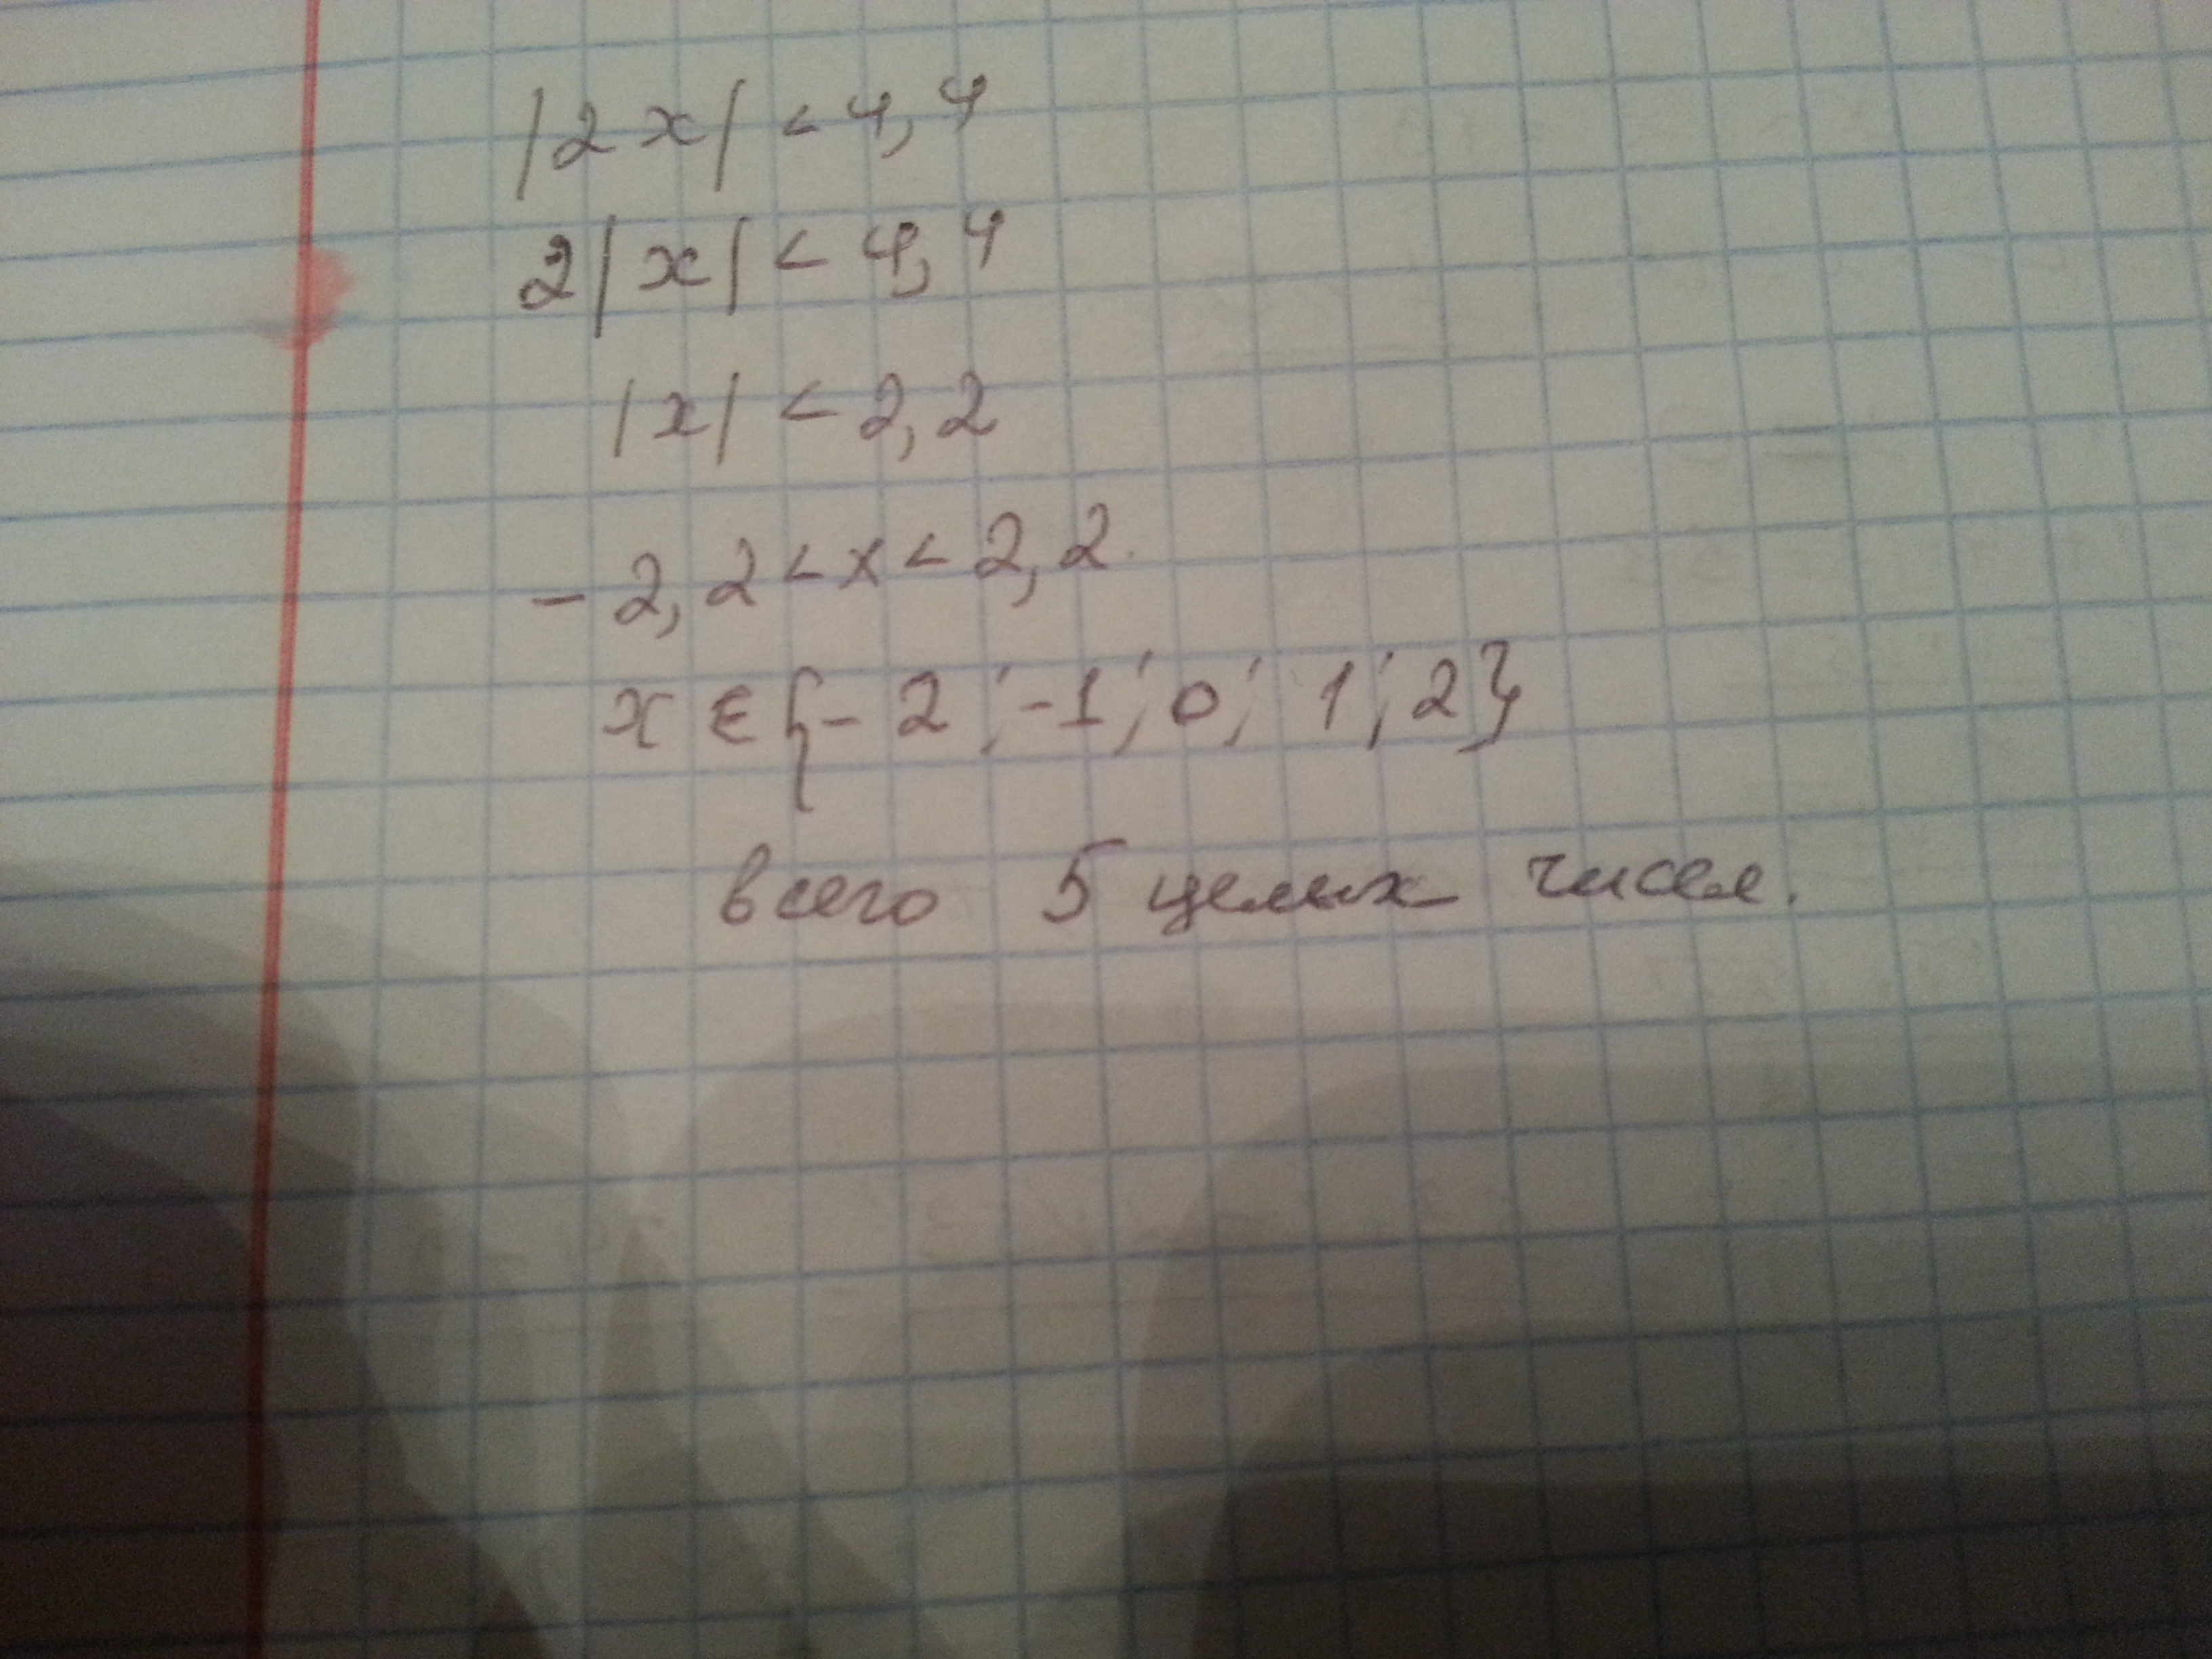 |2x| < 4,4
2|x| < 4,4
|x| < 2,2
-2,2 < x < 2,2
x ∈ {-2; -1; 0; 1; 2}
всего 5 целых чисел.